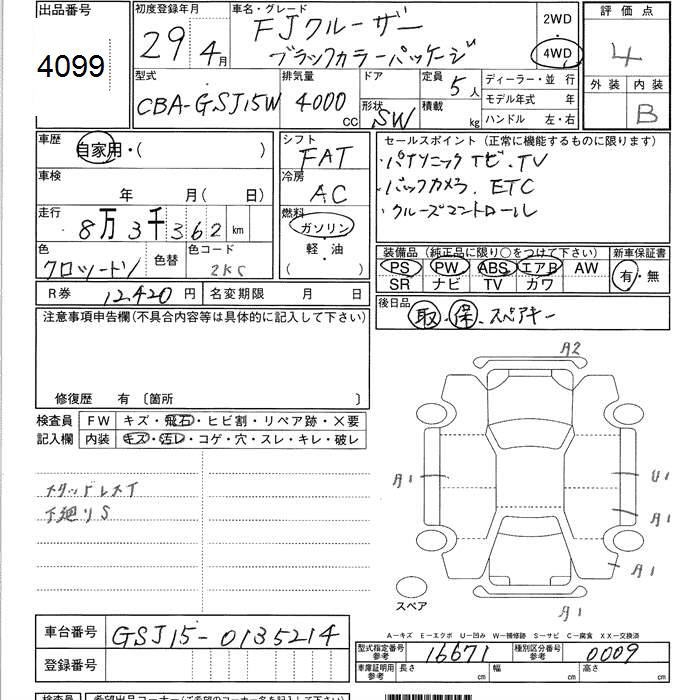 出品番号
4099
初度登録年月
29 4月
車名・グレード
FJクルーザー
ブラックカラーパッケージ
2WD
4WD
評価点
4
外装 内装
B
型式
CBA-GSJ15W
排気量
4000 cc
ドア
形状
SW
定員
5人
積載
kg
ディーラー・並 行
モデル年式 年
ハンドル 左・右
車歴
自家用・( )
車検
年 月( 日)
走行
8万3千362 km
色
クロツートン
色替
色コード
2KC
シフト
FAT
冷房
AC
燃料
ガソリン
軽・油
( )
セールスポイント (正常に機能するものに限ります)
・パナソニック ナビ、TV
・バックカメラ、ETC
・クルーズコントロール
装備品 (純正品に限り○をつけて下さい)
PS PW ABS エアB AW
SR ナビ TV カワ
新車保証書
有・無
R券 12,420 円
名変期限 月 日
後日品
取、保、スペアキー
注意事項申告欄(不具合内容等は具体的に記入して下さい)
修復歴 有 〔箇所 〕
検査員
記入欄
FW キズ・飛石・ヒビ割・リペア跡・×要
内装 キズ・汚レ・コゲ・穴・スレ・キレ・破レ
スタッドレスT
下廻りS
A2
A1
U1
A1
A1
A1
スペア
A-キズ E-エクボ U-凹み W-補修跡 S-サビ C-腐食 XX-交換済
車台番号 GSJ15-0135214
登録番号
型式指定番号
参考
16671
種別区分番号
参考
0009
車庫証明用
参考
長さ cm 幅 cm 高さ cm
検査員
希望出品コーナー(ご希望のコーナー名を記入して下さい)